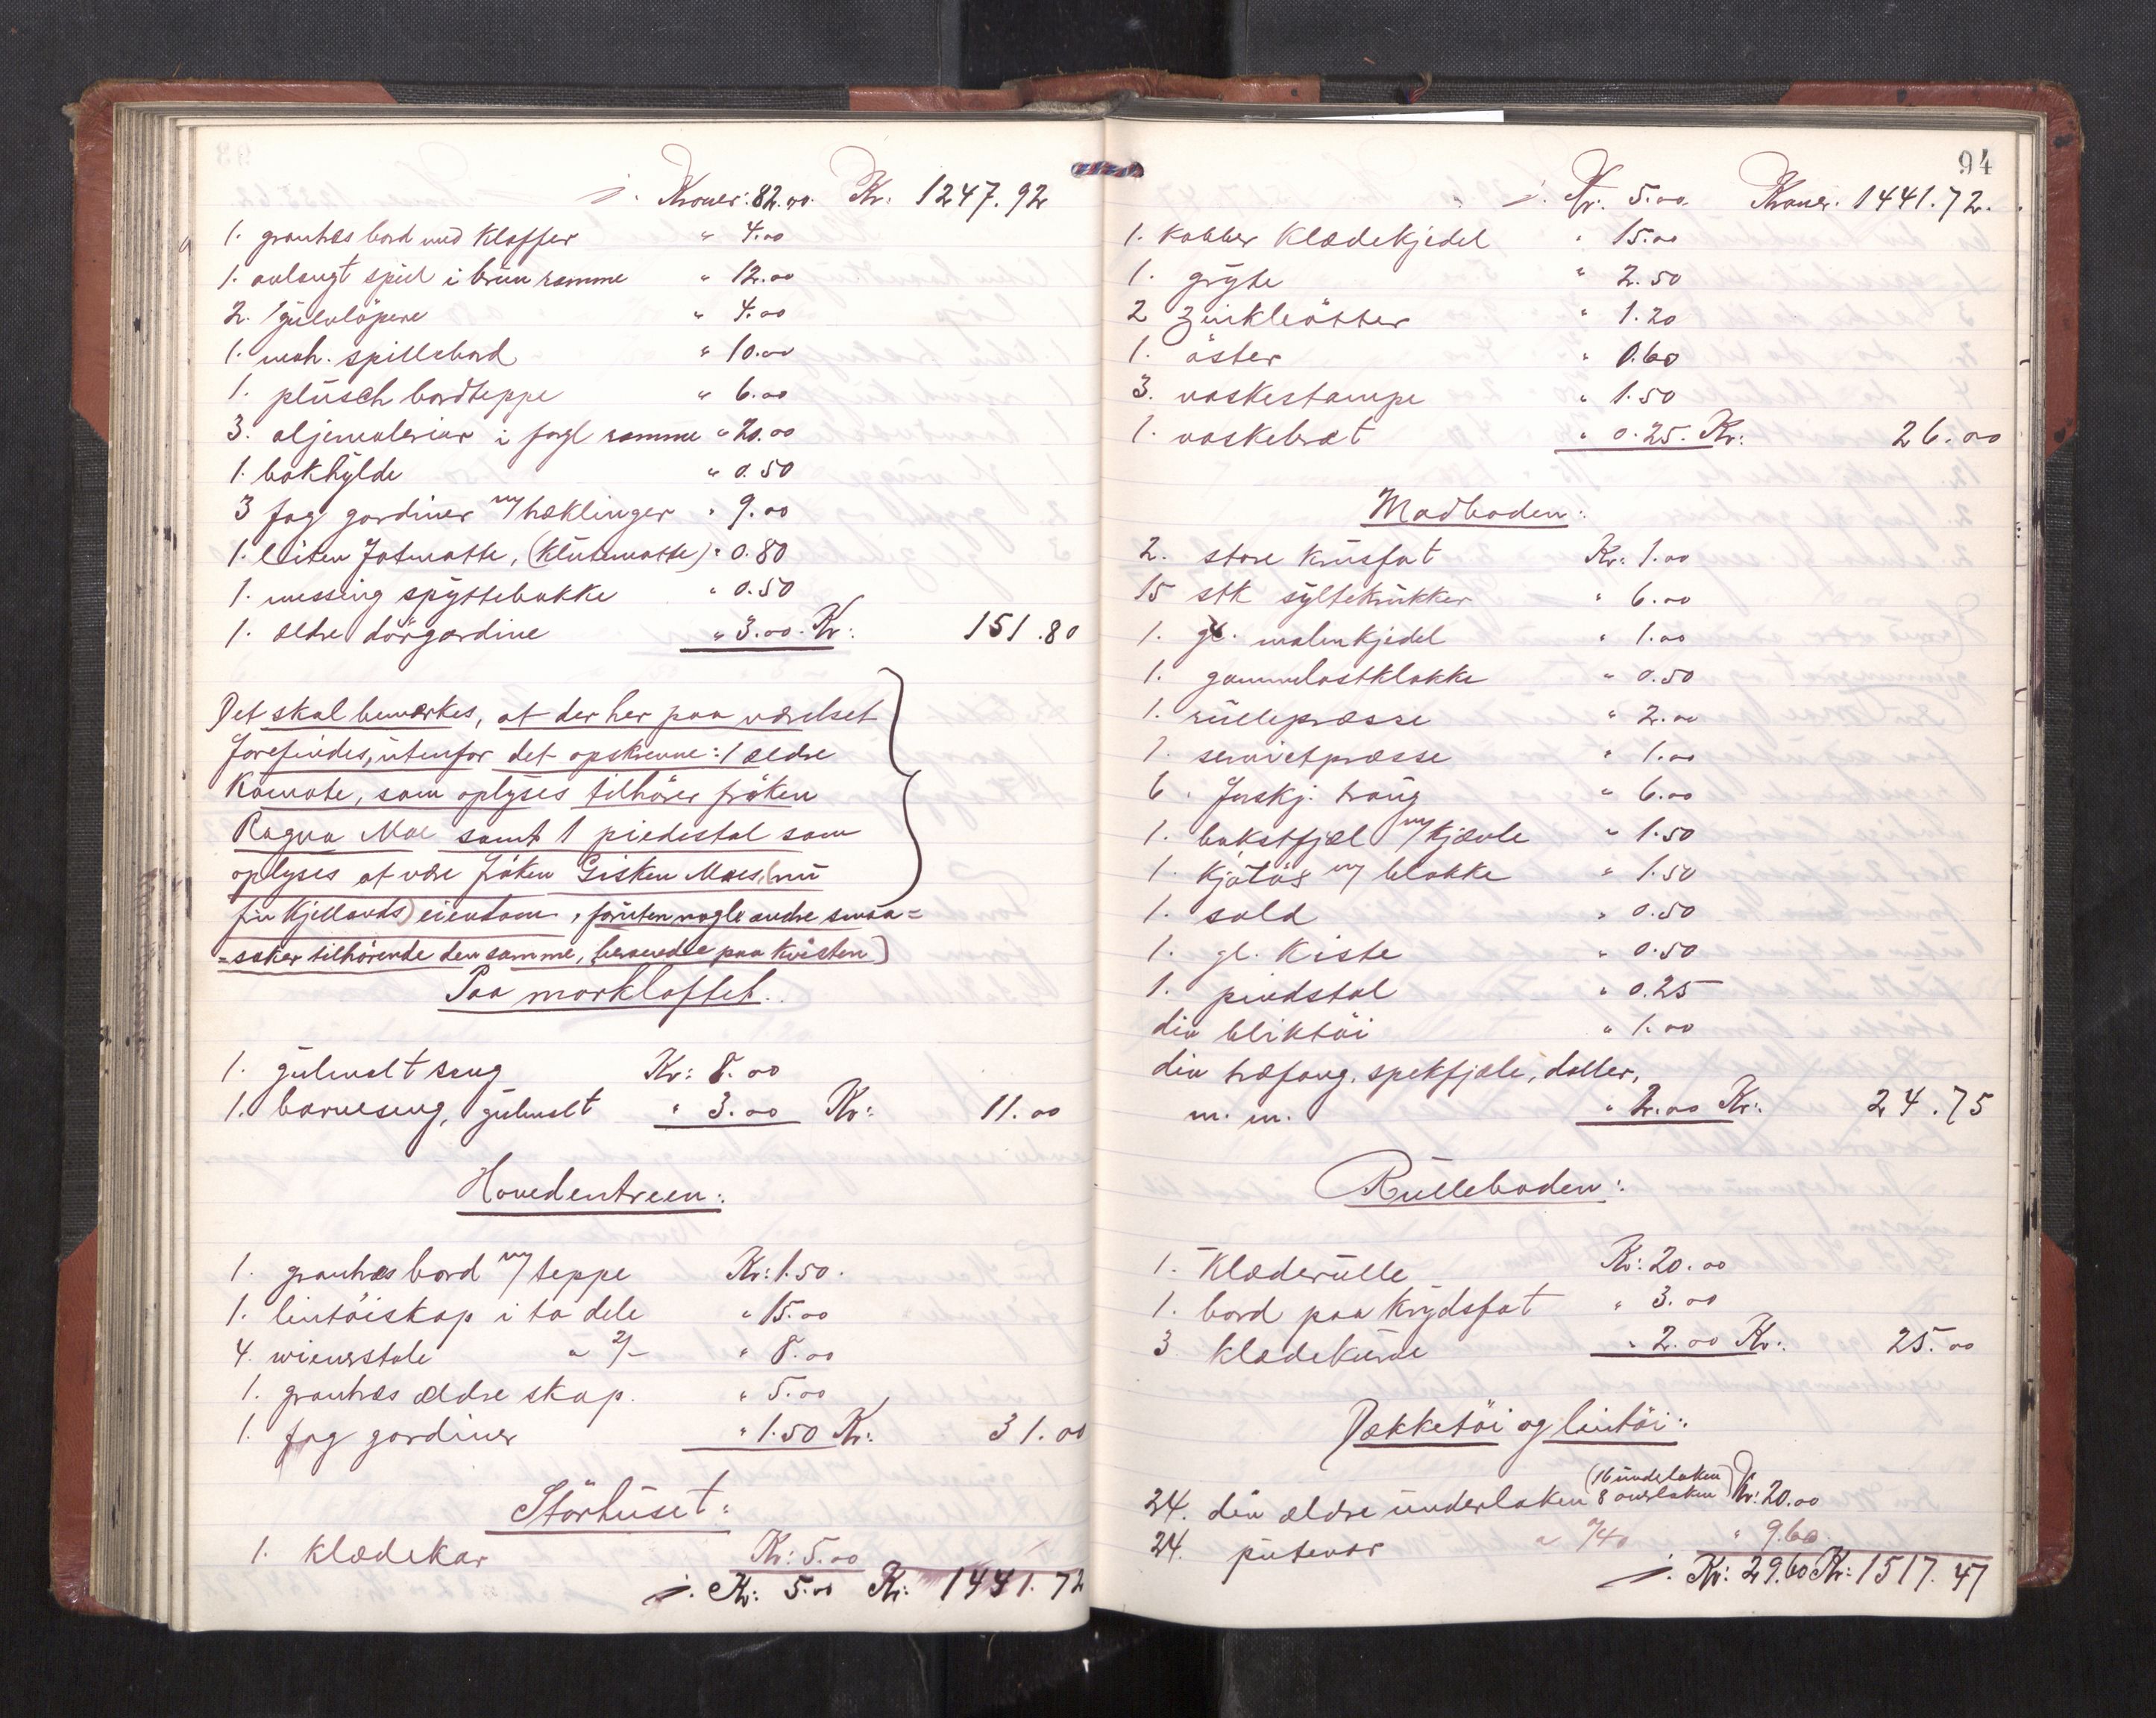 ÷. Kroner: 82.00. Kr: 1247.92
1. grantræs bord med klaffer " 4.00
1. avlangt speil i brun ramme " 12.00
2. gulvløpere " 4.00
1. mah. spillebord " 10.00
1. plüsch bordteppe " 6.00
3. oljemalerier i forgl ramme " 20.00
1. bokhylde " 0.50
3 fag gardiner m/ hæklinger " 9.00
1. liten fotmatte, (klutematte) " 0.80
1. messing spyttebakke " 0.50
1. ældre dörgardine " 3.00. Kr: 151.80
Det skal bemerkes, at der her paa værelset
forefindes, utenfor det opskrevne: 1 ældre
Komode, som oplyses tilhører frøken
Ragna Moe samt 1 piedestal som
oplyses at være frøken Gisken Moes (nu
fru Kjellands) eiendom, foruten nogle andre smaa=
=saker tilhørende den samme, beroende paa kvisten)
Paa mørkloftet.
1. gulmalt seng Kr: 8.00
1. barneseng, gulmalt " 3.00 Kr: 11.00
Hovedentreen:
1. grantræs bord m/ teppe Kr: 1.50.
1. lintöiskap i to dele " 15.00
4. wienerstole a 2/- " 8.00
1. grantræs ældre skap. " 5.00
1. fag gardiner " 1.50 Kr: 31.00
Störhuset:
1. klædekar Kr: 5.00
÷. Kr: 5.00 Kr: 1441.72
94
÷. Kr. 5.00. Kroner. 1441.72.
1. kobber klædekjedel " 15.00
1. gryte " 2.50
2 zinkbøtter " 1.20
1. öster " 0.60
3. vaskestampe " 1.50
1. vaskebræt " 0.25. Kr: 26.00
Madboden:
2. store krusfat Kr: 1.00
15 stk syltekrukker " 6.00
1. gl. malmkjedel " 1.00
1. gammelostklokke " 0.50
1. rullepræsse " 2.00
1. servietpræsse " 1.00
6. forskj. traug " 6.00
1. bakstfjæl m/ kjævle " 1.50
1. kjøtøs m/ blokke " 1.50
1. sold " 0.50
1. gl. kiste " 0.50
1. pindstol " 0.25
div bliktöi " 1.00
div træfang, spekfjæle, daller,
m. m. " 2.00 Kr: 24.75
Rulleboden:
1. Klæderulle Kr: 20.00
1. bord paa krydsfot " 3.00
3 klædekurve " 2.00 Kr: 25.00
Dækketöi og lintöi:
24. div ældre underlaken (16 underlaken 8 overlaken) Kr: 20.00
24. putevar a "/40 " 9.60
÷. Kr: 29.60 Kr: 1517.47